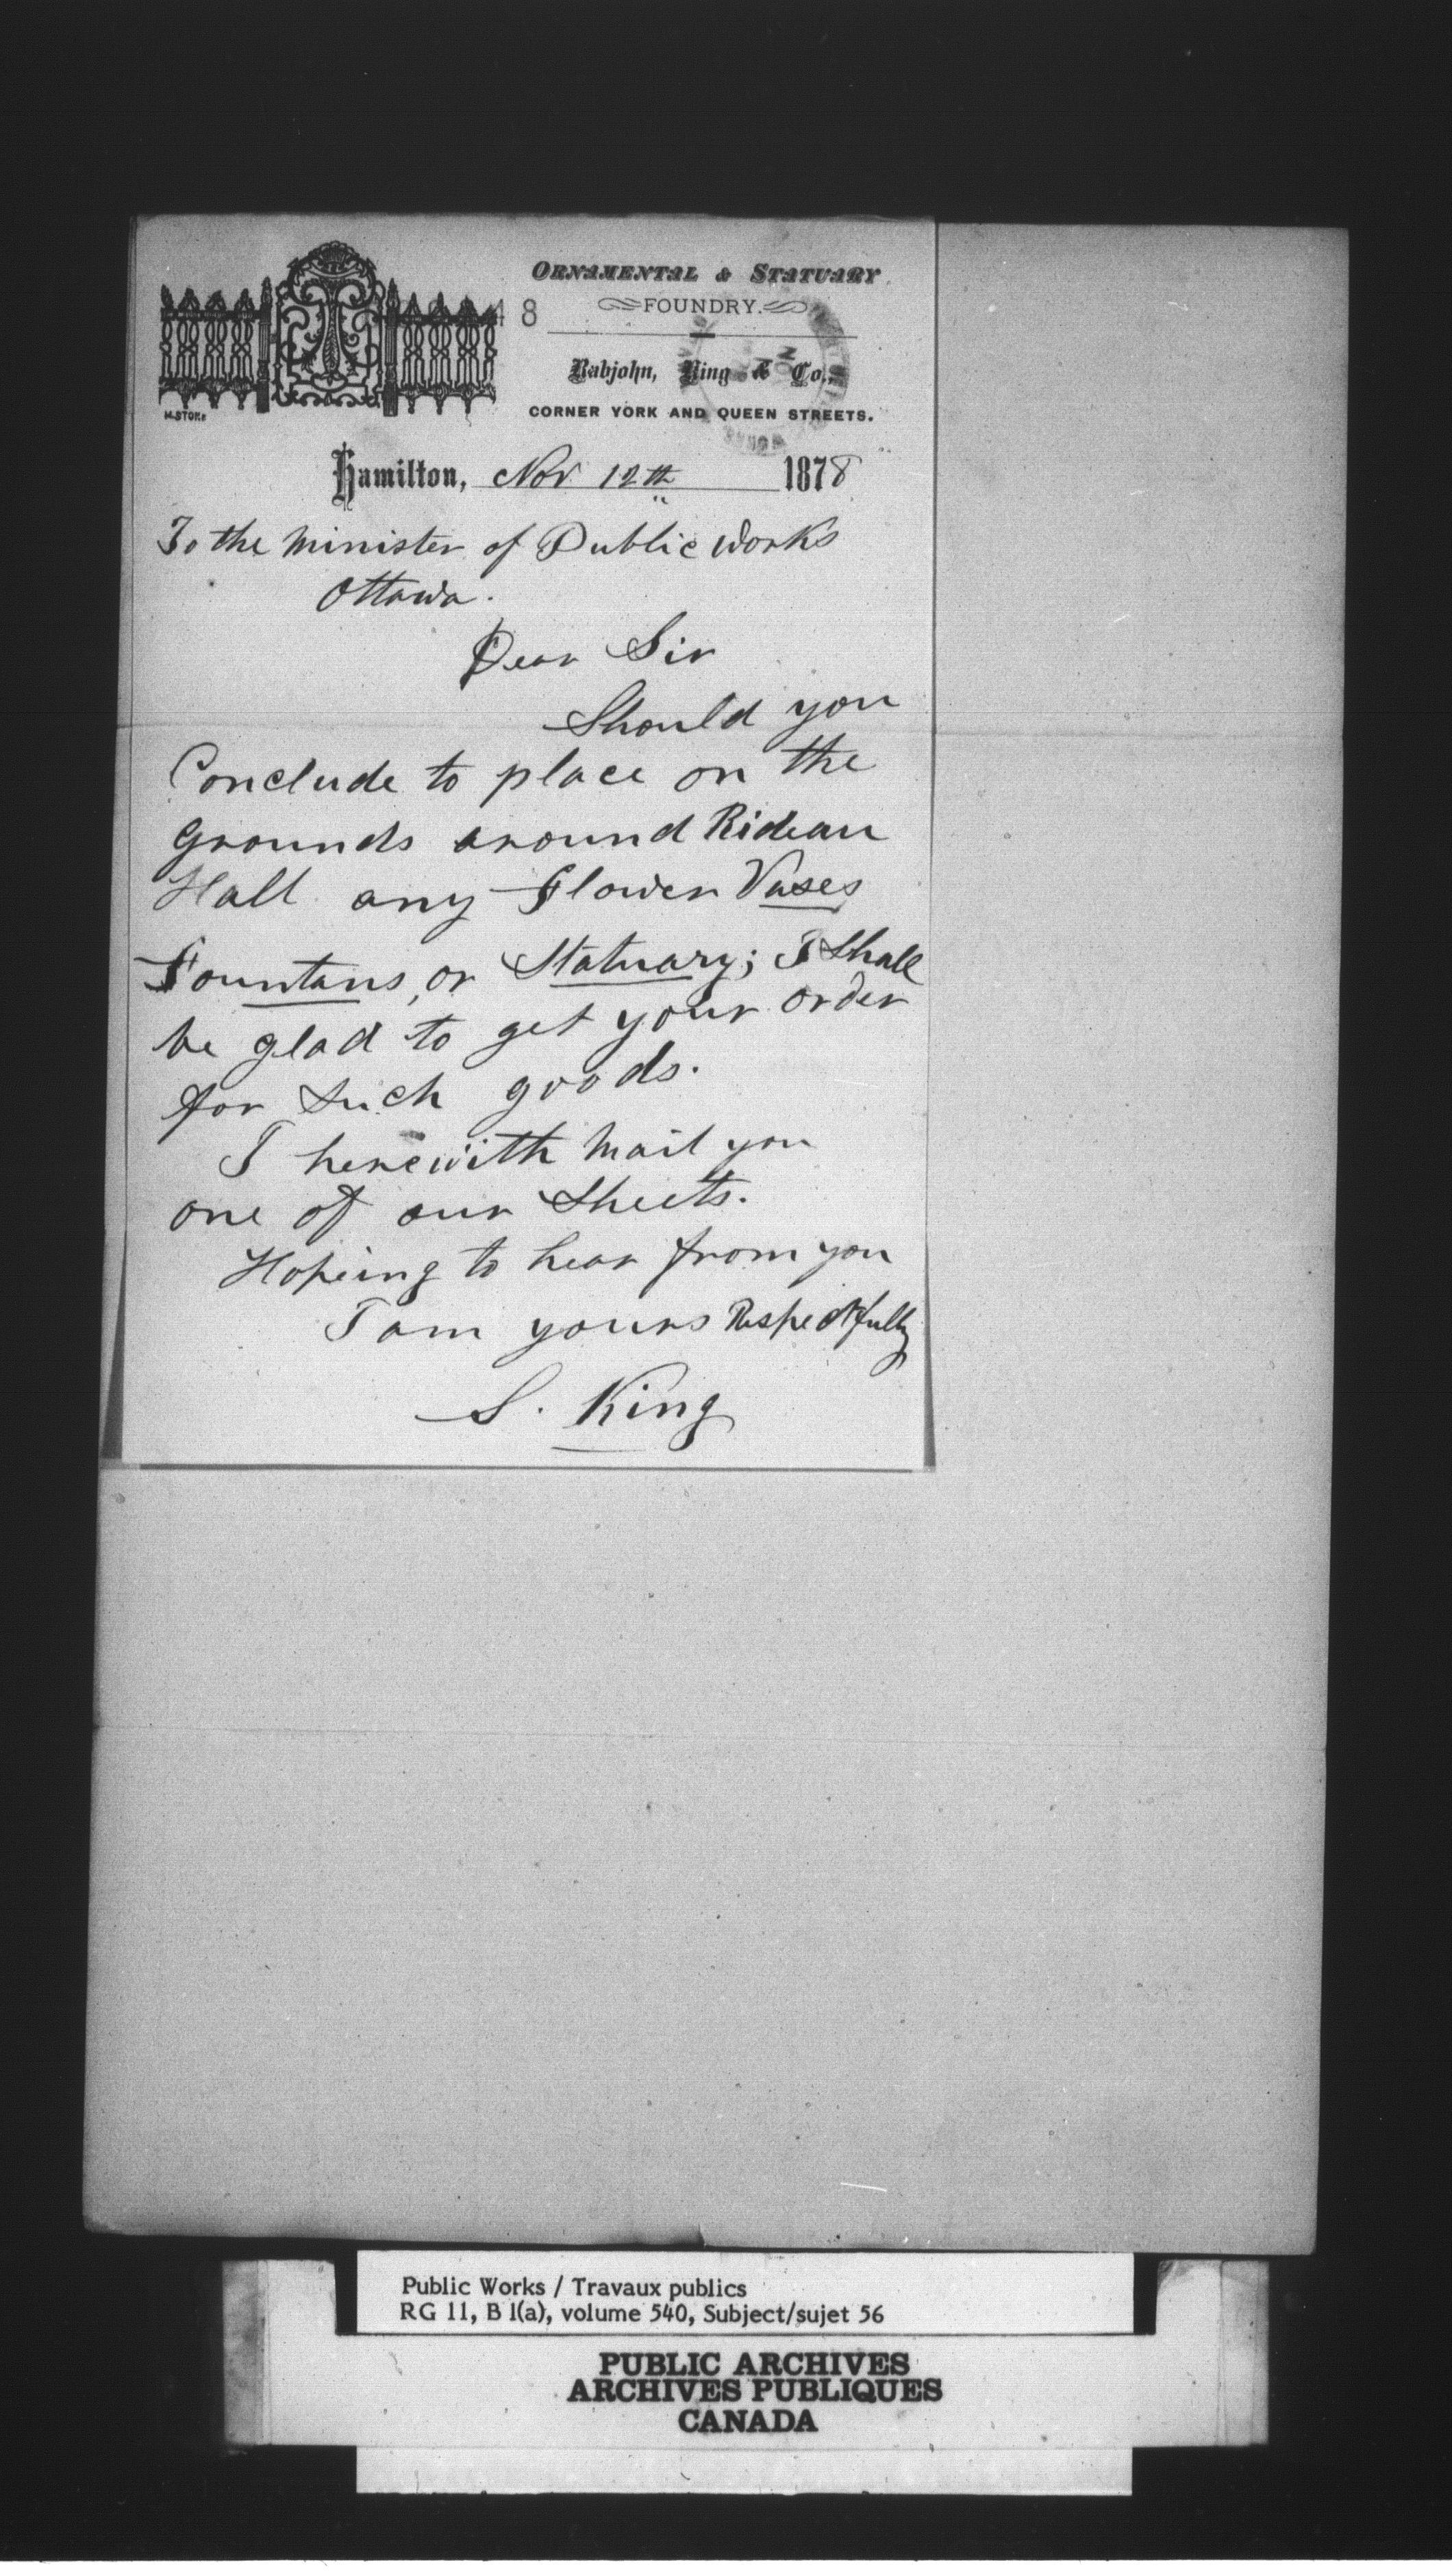 ORNAMENTAL & STATUARY
FOUNDRY.
48
Rabjohn, King & Co.,
CORNER YORK AND QUEEN STREETS.
Hamilton, Nov 12th 1878
To the Minister of Public Works
Ottawa.
Dear Sir
Should you
Conclude to place on the
Grounds around Rideau
Hall any Flower Vases
Fountans, or Statuary; I Shall
be glad to get your order
for Such goods.
I herewith Mail you
one of our Sheets.
Hopeing to hear from you
I am yours Respectfully
S. King
Public Works / Travaux publics
RG 11, B 1(a), volume 540, Subject/sujet 56
PUBLIC ARCHIVES
ARCHIVES PUBLIQUES
CANADA